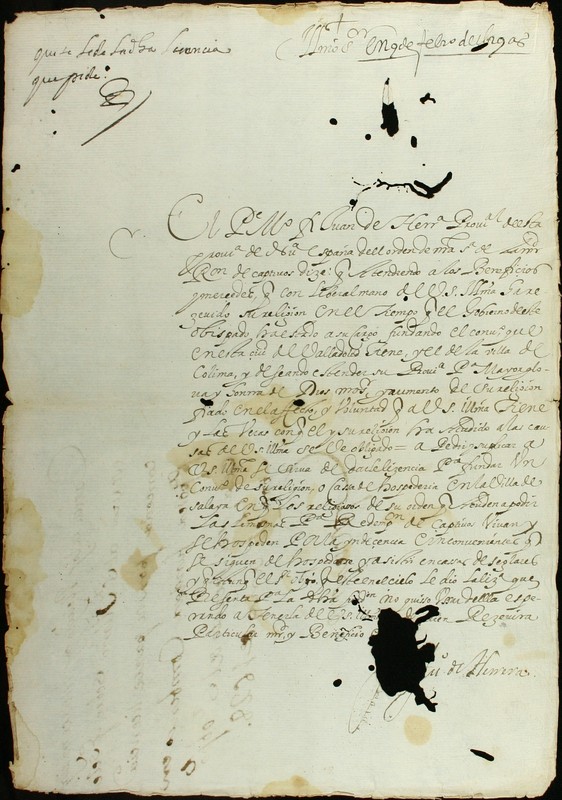 que se le de la dha licencia
que pide.
Illmo Sor
en 9 de febro de
El Pe Mo fr Juan de Herra Provl desta
Provia de Nua España del orden de nra Sa de la mrd
Ron de captivos dize: q Atendiendo a los Beneficios
y mercedes, q con liberal mano de V. S. Illma ha re
cevido su religion en el tiempo q el Gobierno deste
obispado ha estado a su cargo fundando el convto que
en esta ciud de Valladolid tiene, y el de la villa de
Colima, y deseando estender su Provia Pa Mayor glo
ria y honrra de Dios nro sr, y aumento de su religion
fiado en el afecto, y voluntad q a V. S. Illma tiene
y las veces con q el y su religion ha acudido a las cau
sas de V. S. Illma se ve obligado = a Pedir y suplicar a
V. S. Illma se sirva de darle licencia Pa fundar un
Convto de su religion, o casa de hospederia en la Villa de
Salaya en q los religiosos de su orden q van a pedir
las limosnas Pa Redempon de Captivos vivan y
se hospeden Por la yndecencia e inconvenientes q
se siguen de hospedarse y asistir en casas de seglares
y
en el cielo le dio la luz que
Pa la no quiso espe
rando a tenerla de V. S. Illma de quien Rezevira
Particular md, y Beneficio
de Herrera